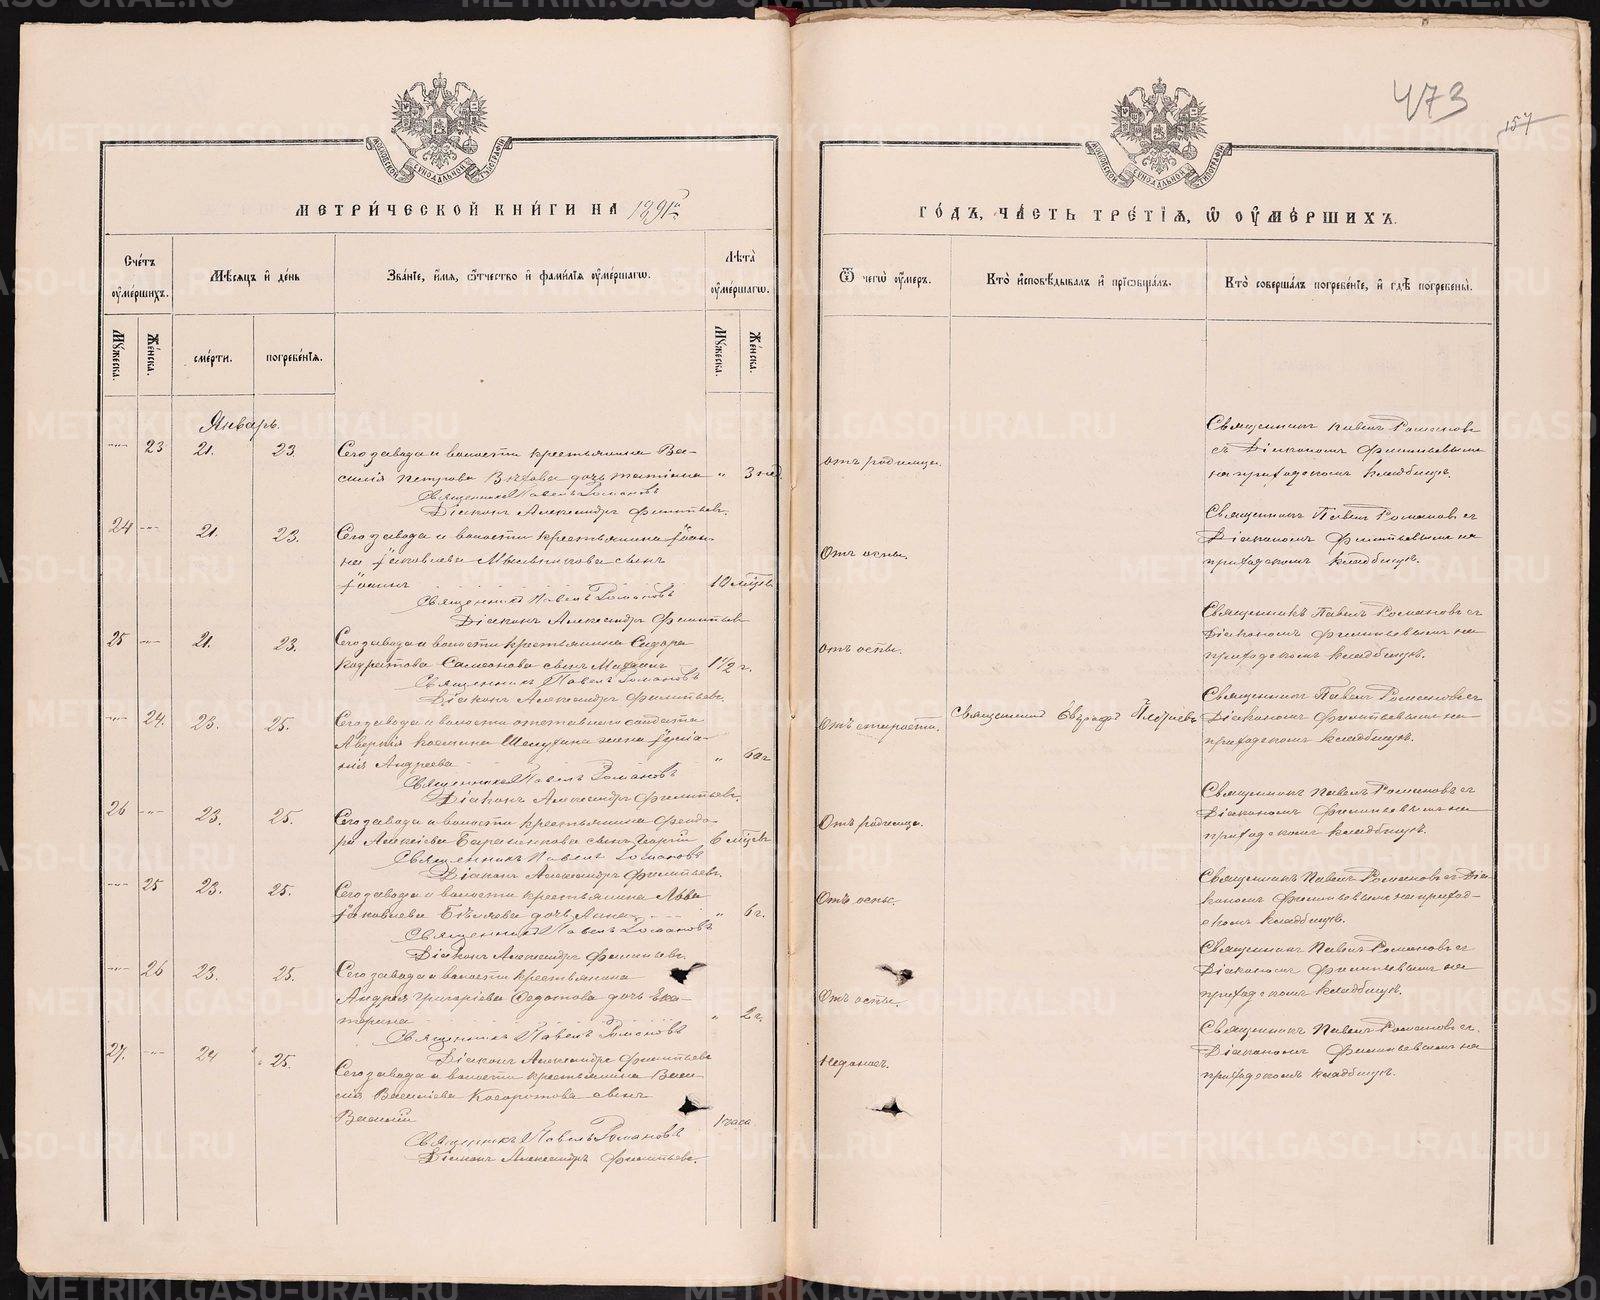 473
157
МОСКОВСКОЙ СѴНОДАЛЬНОЙ ТИПОГРАФІИ
МОСКОВСКОЙ СѴНОДАЛЬНОЙ ТИПОГРАФІИ
МЕТРИ́ЧЕСКОЙ КНИ́ГИ НА 1891й
ГО́ДЪ, ЧА́СТЬ ТРЕ́ТІѦ, Ѡ ОУ҆МЕ́РШИХЪ.
Сче́тъ оу҆ме́ршихъ.
Мѣ́сѧцъ и҆ де́нь
Зва́нїе, и҆́мѧ, ѻ҆́тчество и҆ фами́лїѧ оу҆ме́ршагѡ.
Лѣ́та оу҆ме́ршагѡ.
Ѿ чегѡ̀ оу҆́меръ.
Кто̀ и҆сповѣ́дывалъ и҆ прїѡбща́лъ.
Кто̀ соверша́лъ погребе́нїе, и҆ гдѣ̀ погребены̀.
Мꙋ́жеска.
Же́нска.
сме́рти.
погребе́нїѧ.
Мꙋ́жеска.
Же́нска.
Январь.
23 21. 23.
Сего завода и волости крестьянина Ва-
силія Петрова дочь Татіана " 3 нед.
Священникъ Павелъ Романовъ
Діаконъ Александръ Филитьевъ.
отъ родимца.
Священникъ Павелъ Романовъ
съ Діакономъ Филитьевымъ
на приходскомъ кладбищѣ.
24 21. 23.
Сего завода и волости крестьянина Іоан-
на Іаковлева сынъ
Іоаннъ 10 мѣцъ.
Священникъ Павелъ Романовъ
Діаконъ Александръ Филитьевъ
Отъ оспы.
Священникъ Павелъ Романовъ съ
Діакономъ Филитьевымъ на
приходскомъ кладбищѣ.
25 21. 23.
Сего завода и волости крестьянина Сидора
Самсонова сынъ 1 1/2 г.
Священникъ Павелъ Романовъ
Діаконъ Александръ Филитьевъ.
отъ оспы.
Священникъ Павелъ Романовъ съ
Діакономъ Филитьевымъ на
приходскомъ кладбищѣ.
24. 23. 25.
Сего завода и волости отставного солдата
Аверкія Шелухина жена Іуліа-
нія Андреева " 60 г.
Священникъ Павелъ Романовъ
Діаконъ Александръ Филитьевъ.
Отъ старости.
Священникъ Евграфъ
Священникъ Павелъ Романовъ съ
Діакономъ Филитьевымъ на
приходскомъ кладбищѣ.
26 23. 25.
Сего завода и волости крестьянина Феодо-
ра Алексіева сынъ Георгій 6 мѣцевъ
Священникъ Павелъ Романовъ
Діаконъ Александръ Филитьевъ.
Отъ родимца.
Священникъ Павелъ Романовъ съ
Діакономъ Филитьевымъ на
приходскомъ кладбищѣ.
25 23. 25.
Сего завода и волости крестьянина Льва
Іаковлева Бѣляева дочь Анна " 6 г.
Священникъ Павелъ Романовъ
Діаконъ Александръ Филитьевъ.
Отъ оспы.
Священникъ Павелъ Романовъ съ Діа-
кономъ Филитьевымъ на приход-
скомъ кладбищѣ.
26 23. 25.
Сего завода и волости крестьянина
Андрея Григоріева Федотова дочь Ека-
терина " 2 г.
Священникъ Павелъ Романовъ
Діаконъ Александръ Филитьевъ
Отъ оспы.
Священникъ Павелъ Романовъ съ
Діакономъ Филитьевымъ на
приходскомъ кладбищѣ.
27. 24 25.
Сего завода и волости крестьянина Васи-
лія Васильева сынъ
Василій 1 часа
Священникъ Павелъ Романовъ
Діаконъ Александръ Филитьевъ.
Недоносъ.
Священникъ Павелъ Романовъ съ
Діакономъ Филитьевымъ на
приходскомъ кладбищѣ.
METRIKI.GASO-URAL.RU